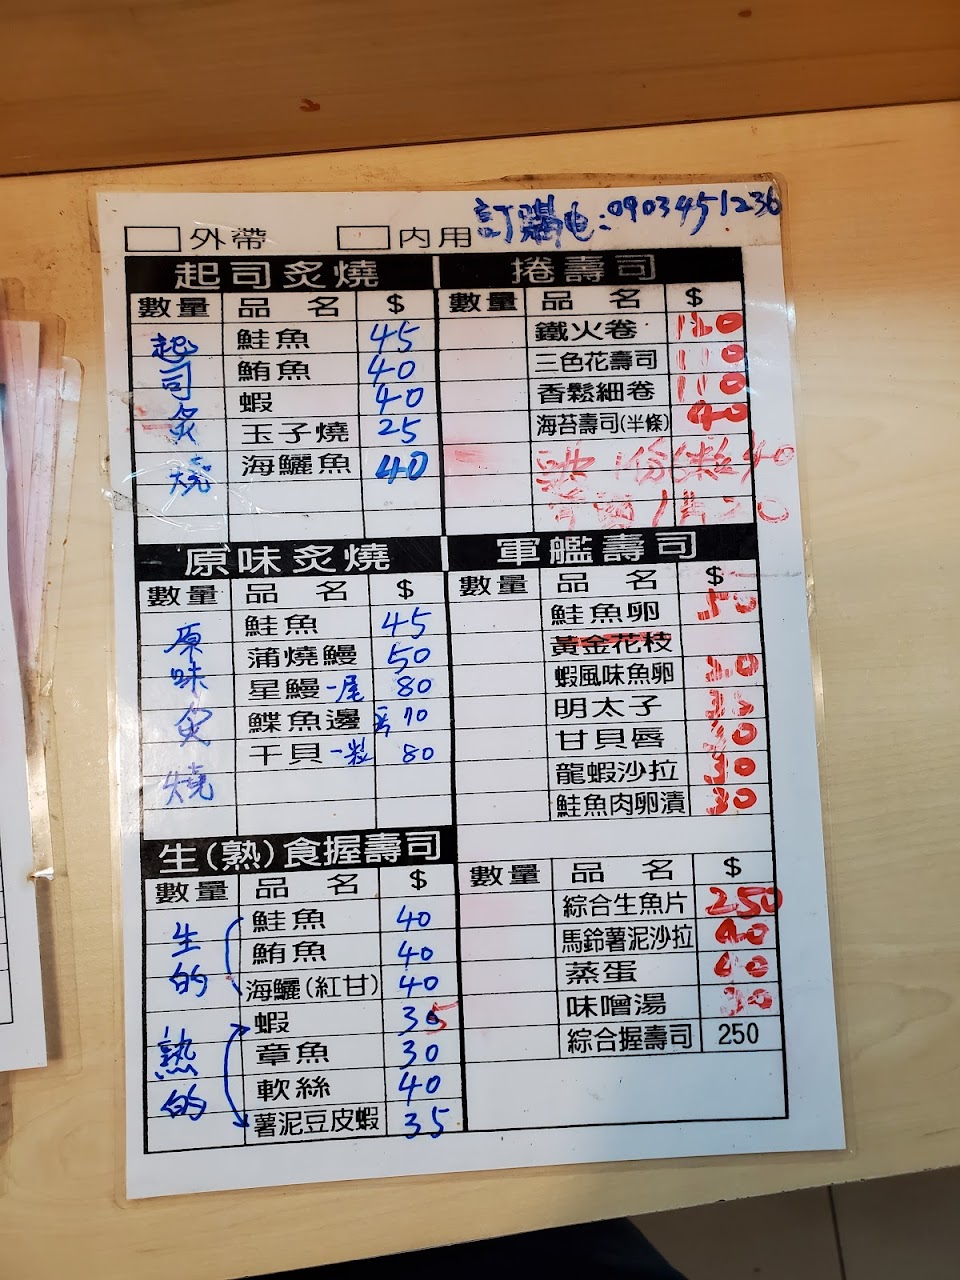 訂購电:0903451236
外帶 內用
起司炙燒
數量 品名 $
起司炙燒
鮭魚 45
鮪魚 40
蝦 40
玉子燒 25
海鱺魚 40
捲壽司
數量 品名 $
鐵火卷
三色花壽司 110
香鬆細卷 110
海苔壽司(半條) 40
原味炙燒
數量 品名 $
原味炙燒
鮭魚 45
蒲燒鰻 50
星鰻 一尾 80
鰈魚邊 70
干貝 一粒 80
軍艦壽司
數量 品名 $
鮭魚卵 50
黃金花枝
蝦風味魚卵
明太子
甘貝唇 30
龍蝦沙拉 30
鮭魚肉卵漬 30
生(熟)食握壽司
數量 品名 $
生的
鮭魚 40
鮪魚 40
海鱺(紅甘) 40
熟的
蝦 35
章魚 30
軟絲 40
薯泥豆皮蝦 35
數量 品名 $
綜合生魚片 250
馬鈴薯泥沙拉 40
蒸蛋 40
味噌湯 30
綜合握壽司 250